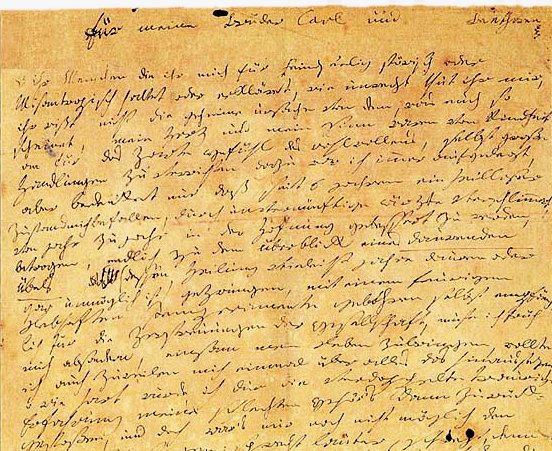 für meine Brüder Carl und Beethowen
o ihr Menschen die ihr mich für Feindseelig störisch oder
Misantropisch haltet oder erkläret, wie unrecht thut ihr mir,
ihr wißt nicht die geheime urßache von dem, was euch so
scheinet, mein Herz und mein Sinn waren von Kindheit
an für das Zarte Gefühl des wohlwollens, selbst große
Handlungen zu verrichten dazu war ich immer aufgelegt,
aber bedenket nur daß seit 6 jahren ein heilloser
Zustand mich befallen, durch unvernünftige ärzte verschlimmert
von jahr zu jahr in der Hofnung gebessert zu werden,
betrogen, endlich zu dem überblick eines daurenden
Übels (dessen Heilung vieleicht jahre dauren oder
gar unmöglich ist) gezwungen, mit einem feurigen
Lebhaften Temperamente gebohren selbst empfäng
lich für die Zerstreuungen der Gesellschaft, muste ich früh
mich absondern, einsam mein Leben zubringen, wollte
ich auch zuweilen mich einmal über alles das hinaussezen,
o wie hart wurde ich dur die verdoppelte traurige
Erfahrung meines schlechten Gehör's dann zurück-
gestoßen, und doch war's mir noch nicht möglich den
sprecht lauter, schrejt, denn